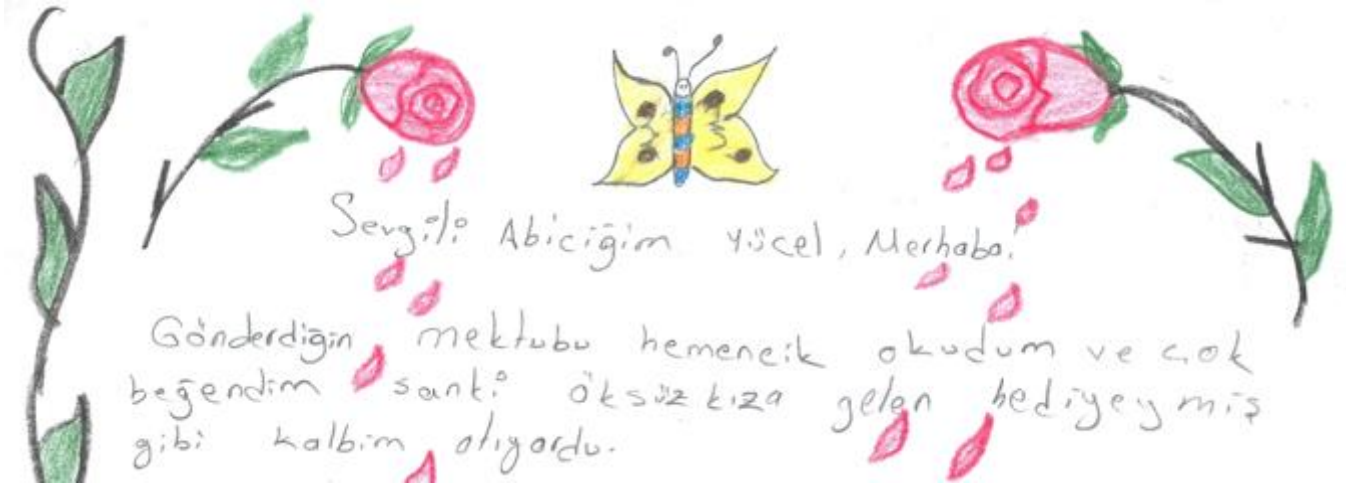 Sevgili Abiciğim Yücel, Merhaba!
Gönderdiğin mektubu hemencik okudum ve çok
beğendim sanki öksüz kıza gelen hediyeymiş
gibi kalbim atıyordu.